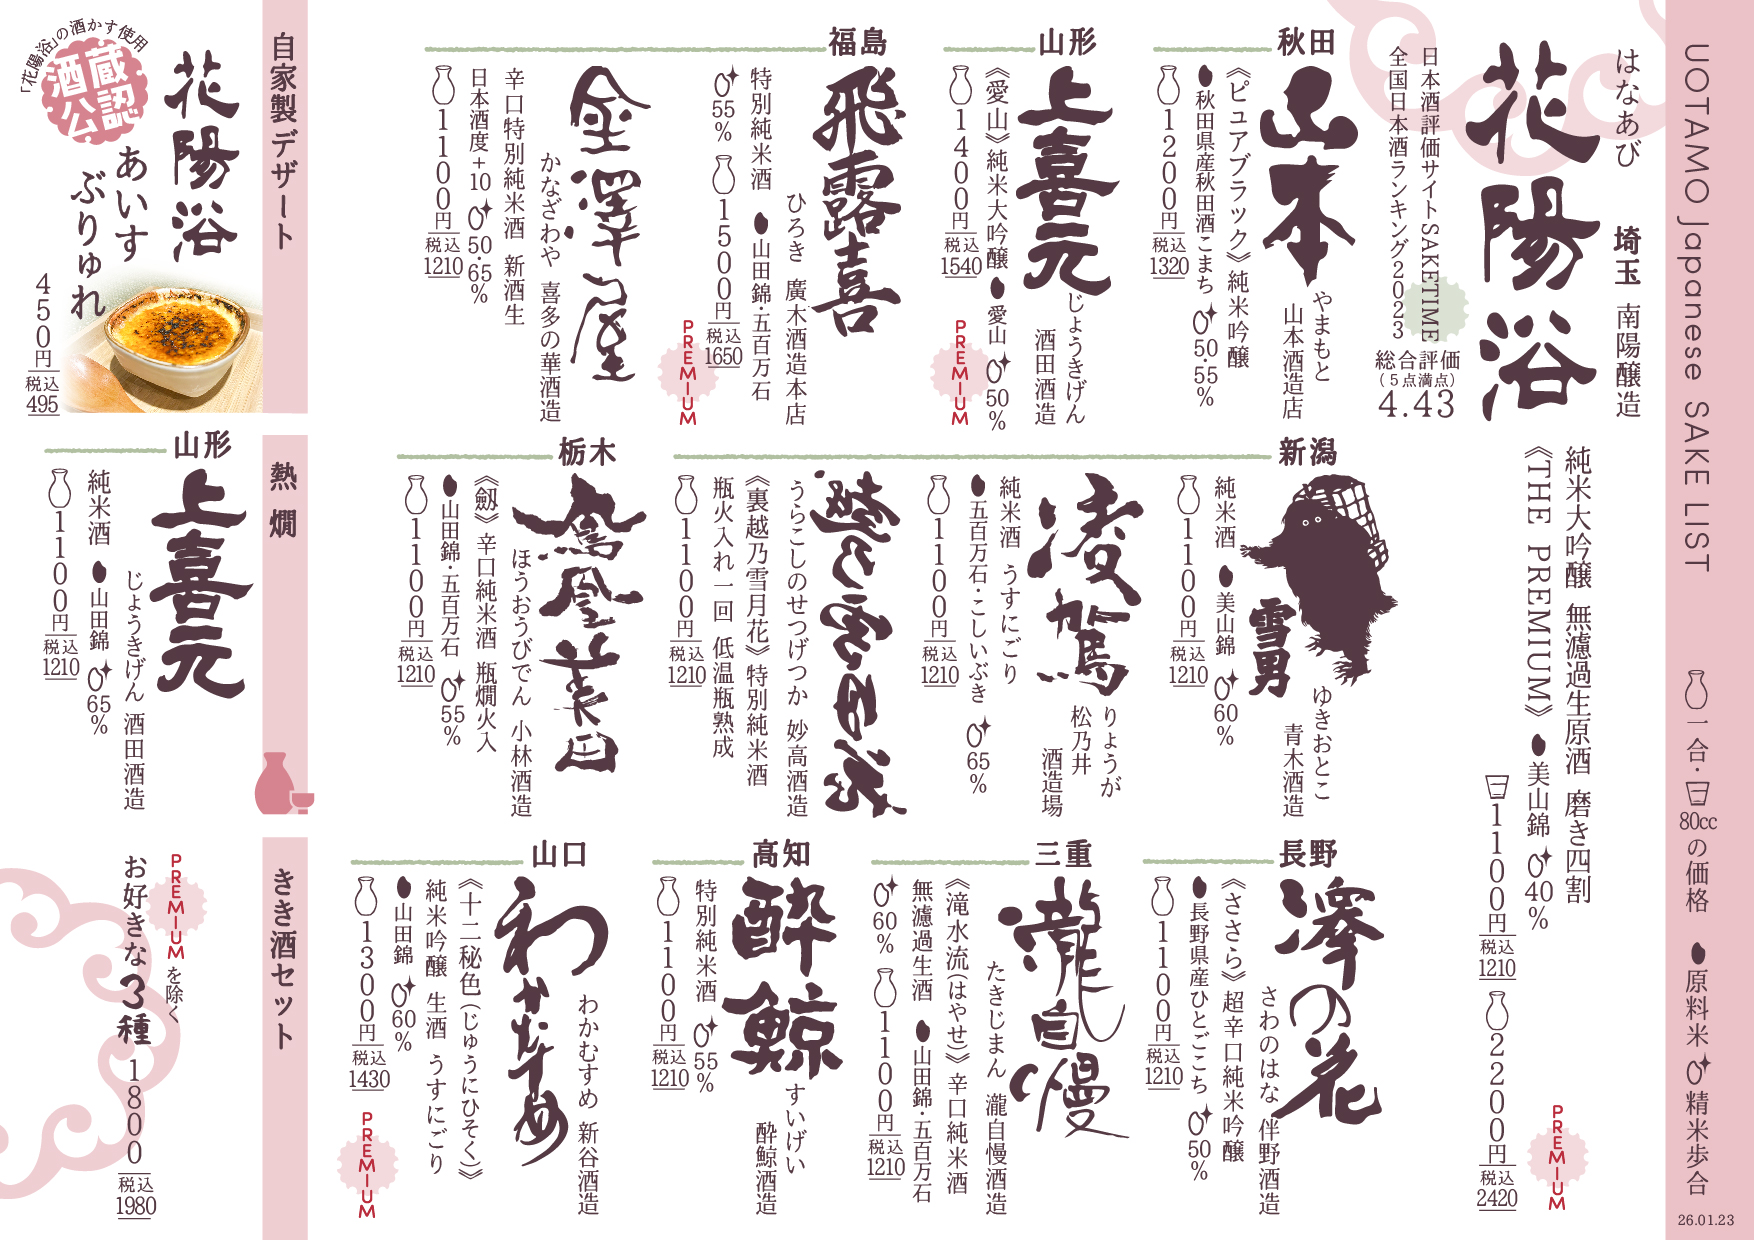 UOTAMO Japanese SAKE LIST
一合・80ccの価格
原料米 精米歩合
26.01.23
はなあび
埼玉 南陽醸造
花陽浴
日本酒評価サイトSAKETIME
全国日本酒ランキング2023
総合評価
(5点満点)
4.43
純米大吟醸 無濾過生原酒 磨き四割
《THE PREMIUM》 美山錦 40%
1100円 税込 1210
2200円 税込 2420
PREMIUM
秋田
山本
やまもと
山本酒造店
《ピュアブラック》純米吟醸
秋田県産秋田酒こまち 50・55%
1200円 税込 1320
山形
上喜元
じょうきげん
酒田酒造
《愛山》純米大吟醸 愛山 50%
1400円 税込 1540
PREMIUM
福島
飛露喜
ひろき 廣木酒造本店
特別純米酒 山田錦・五百万石
55% 1500円 税込 1650
PREMIUM
金澤屋
かなざわや 喜多の華酒造
辛口特別純米酒 新酒生
日本酒度+10 50・65%
1100円 税込 1210
新潟
雪男
ゆきおとこ
青木酒造
純米酒 美山錦 60%
1100円 税込 1210
凌駕
りょうが
松乃井
酒造場
純米酒 うすにごり
五百万石・こしいぶき 65%
1100円 税込 1210
うらこしのせつげつか 妙高酒造
《裏越乃雪月花》特別純米酒
瓶火入れ一回 低温瓶熟成
1100円 税込 1210
栃木
鳳凰美田
ほうおうびでん 小林酒造
《劔》辛口純米酒 瓶燗火入
山田錦・五百万石 55%
1100円 税込 1210
長野
澤の花
さわのはな 伴野酒造
《ささら》超辛口純米吟醸
長野県産ひとごこち 50%
1100円 税込 1210
三重
瀧自慢
たきじまん 瀧自慢酒造
《滝水流(はやせ)》辛口純米酒
無濾過生酒 山田錦・五百万石
60% 1100円 税込 1210
高知
酔鯨
すいげい
酔鯨酒造
特別純米酒 55%
1100円 税込 1210
山口
わかむすめ
わかむすめ 新谷酒造
《十二秘色(じゅうにひそく)》
純米吟醸 生酒 うすにごり
山田錦 60%
1300円 税込 1430
PREMIUM
自家製デザート
「花陽浴」の酒かす使用
酒蔵公認
花陽浴
あいす
ぶりゅれ
450円 税込 495
熱燗
山形
上喜元
じょうきげん 酒田酒造
純米酒 山田錦 65%
1100円 税込 1210
きき酒セット
PREMIUMを除く
お好きな3種 1800 税込 1980